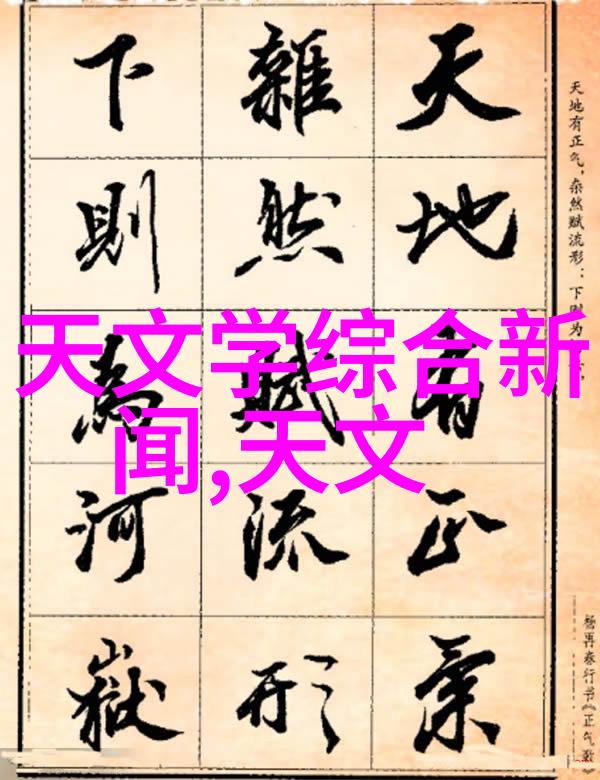 天地有正氣
雜然賦流形
下則為河嶽
天地有正气，杂然赋流形：下则为
杨再春行书《正气歌》
天文学综合新
闻,天文